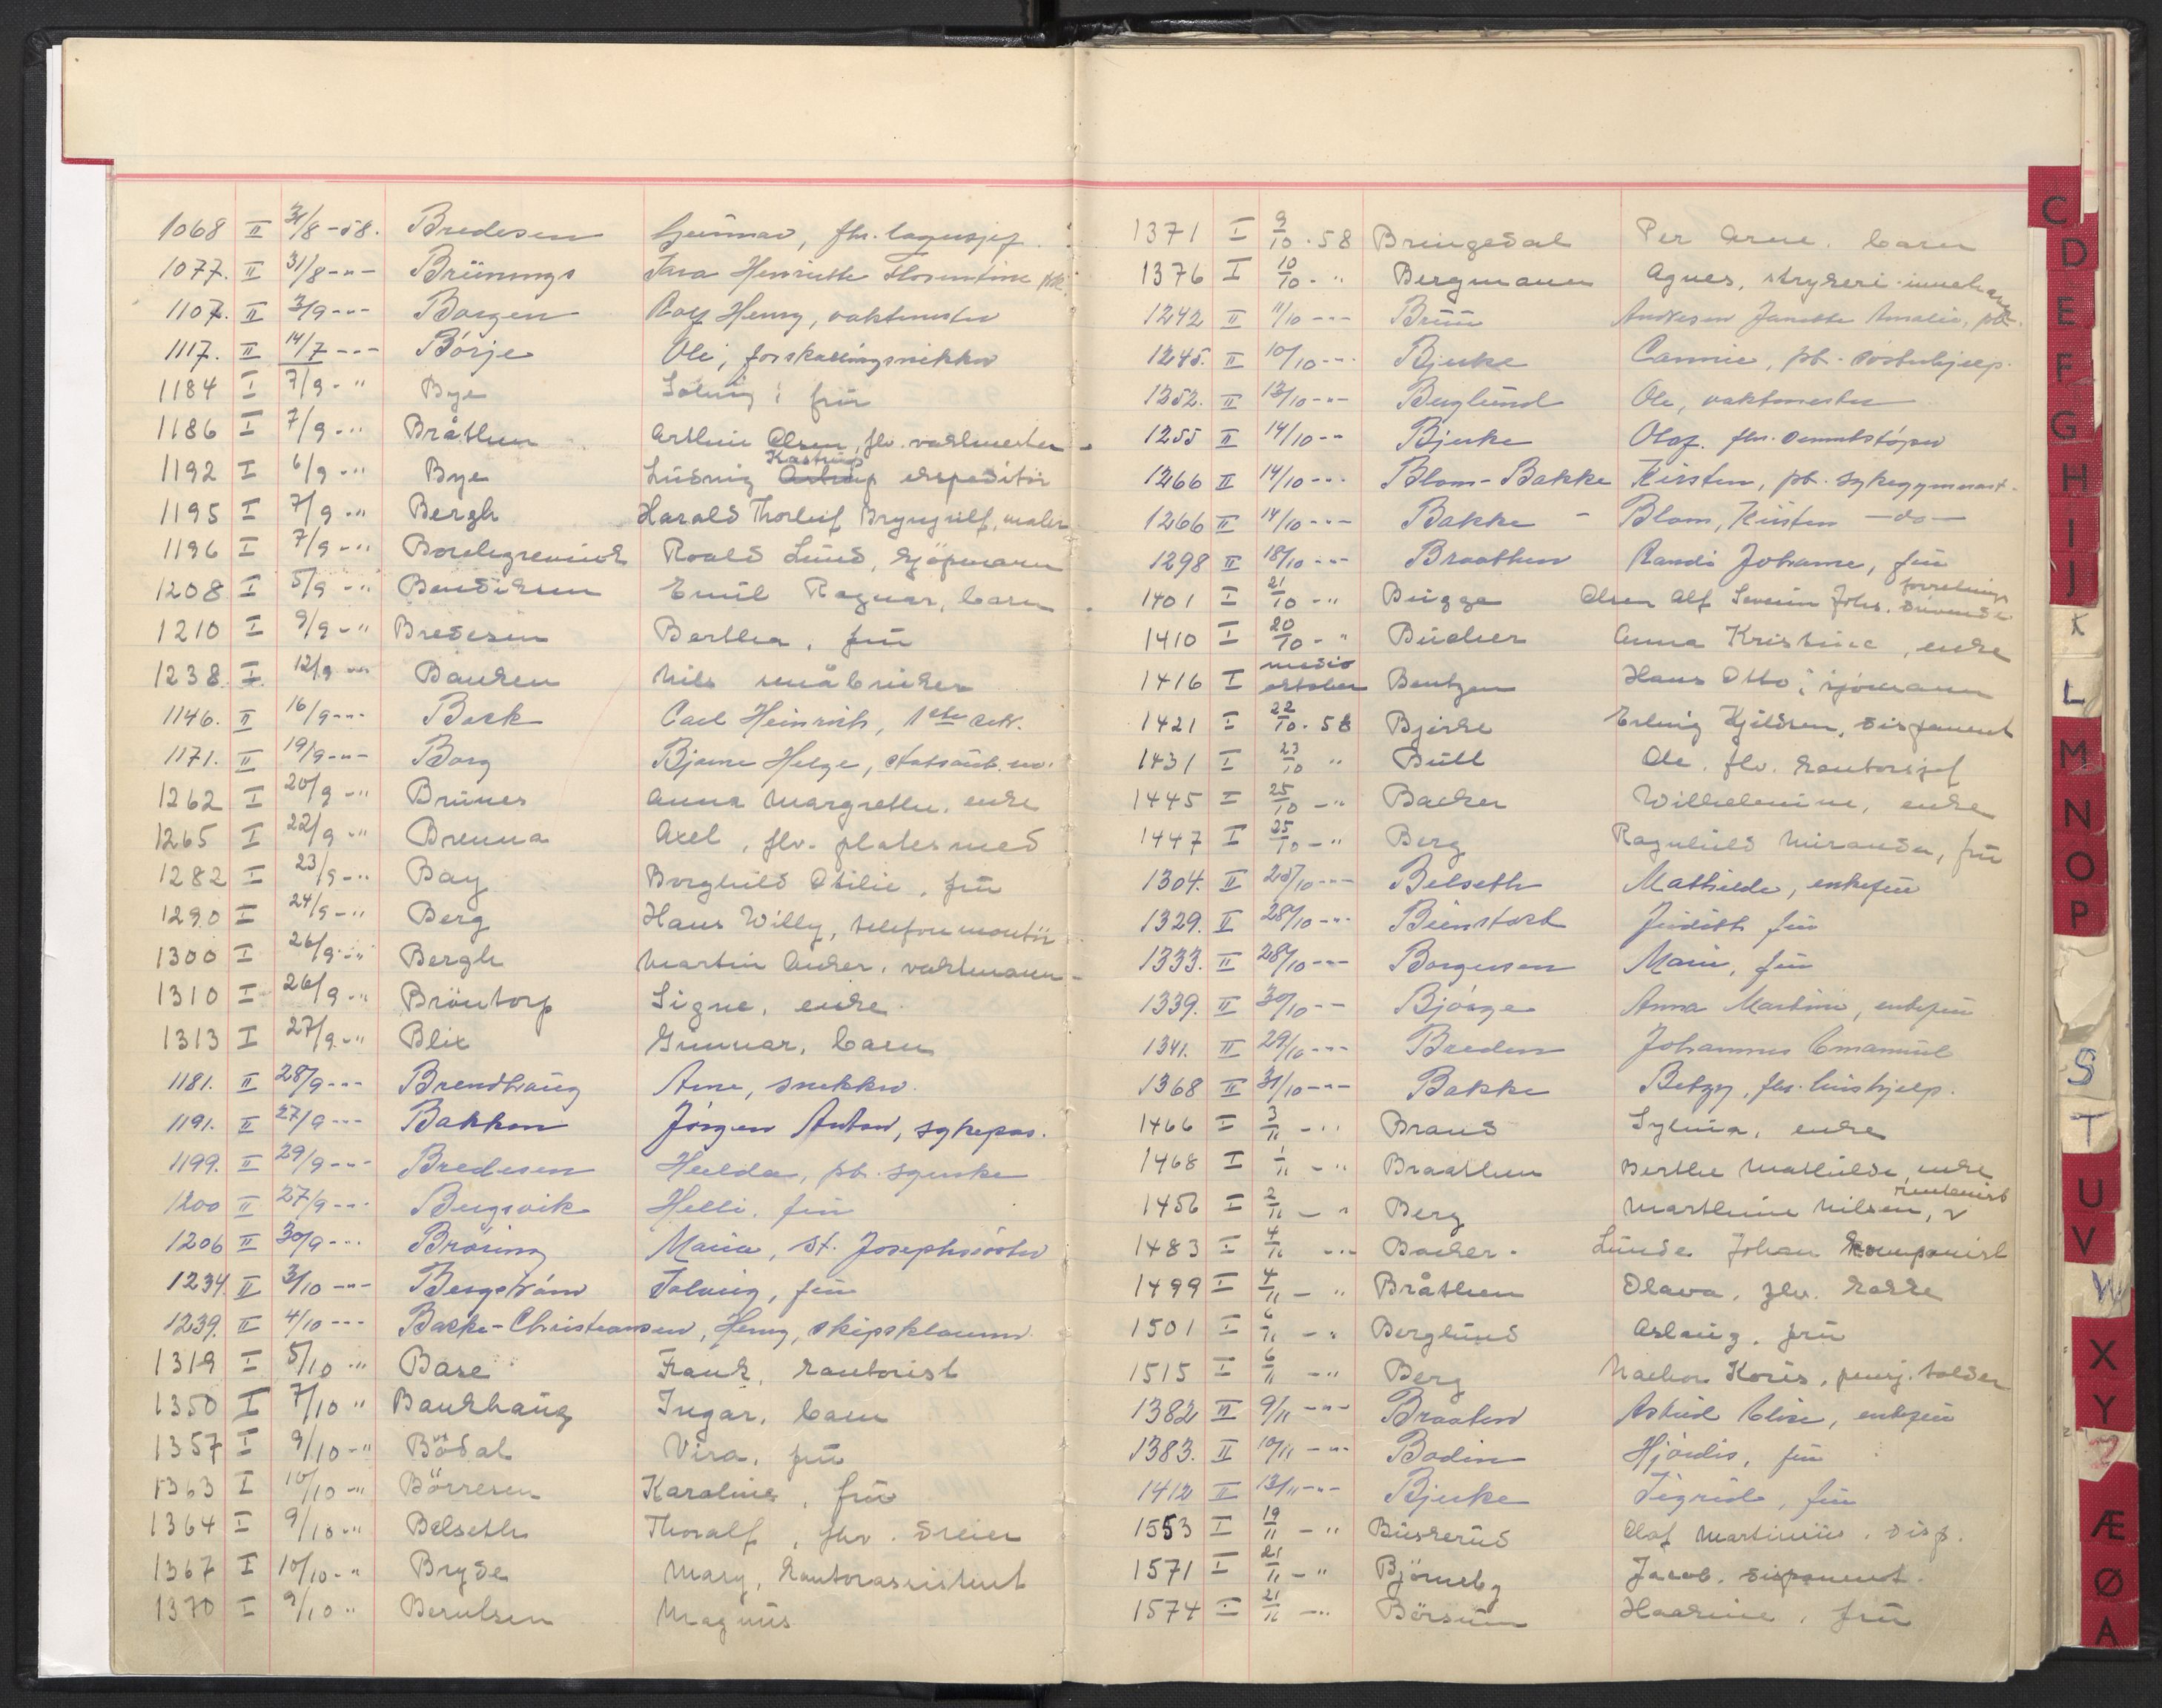 1068 II 31/8-58. Bredesen Gunnar, fhv. lagersjef
1077. II 31/8 -"- Brünings Henriette Florentine
1107. II 3/9 -"- Borgen Rolf Henry, vaktmester
1117. II 14/7 -"- Börje Ole, forskalingsnikker
1184 I 7/9 -" Bye Solveig, frü
1186 I 7/9 -" Bråthen Arthur Olsen, flv. vaktmester
1192 I 6/9 -" Bye Ludvig Kastrup ekspeditör
1195 I 7/9 -" Bergh Harald Thorleif Bryngulf, maler
1196 I 7/9 -" Borchgrevink Roald Lund, kjöpmann
1208 I 5/9 -" Bendiksen Emil Ragnar, barn
1210 I 9/9 -" Bredesen Berthea, frü
1238 I 12/9 -" Banken Nils småbruker
1146. II 16/9 -"- Bock Carl Heinrich, 1ste sekr.
1171. II 19/9 -"- Borg Bjarne Helge,
1262 I 20/9 -" Brünes Anna Margrethe, enke
1265 I 22/9 -" Brenna Axel, flv. platesmed
1282 I 23/9 -" Bay Borghild Otilie, frü
1290 I 24/9 -" Berg Hans Willy, telefonmontör
1300 I 26/9 -" Bergh Martin Anker, vaktmann
1310 I 26/9 -" Bröntorp Signe, enke
1313 I 27/9 -" Blix Gunnar, barn
1181. II 28/9 -"- Brendhaug Arne, snekker.
1191. II 27/9 -"- Bakken Jörgen Anton, sykepas.
1199. II 29/9 -"- Bredesen Hulda, pb. syerske
1200 II 27/9 -"- Bergsvik Helli, frü
1206 II 30/9 -"- Bröring Maria, St. Josephssöster
1234. II 3/10 -"- Bergström Solveig, frü
1239. II 4/10 -"- Backe-Christiansen, Henry, skipsklarerer
1319 I 5/10 -" Base Frank, kontorist
1350 I 7/10 " Baukhaug Ingar, barn
1357 I 9/10 -" Bödal Vira, frü
1363 I 10/10 -" Börresen Karoline, frü
1364 I 9/10 -" Belseth Thoralf, fhv. dreier
1367 I 10/10 -" Bryde Mary, kontorassistent
1370 I 9/10 " Berntsen Magnus
1371 I 9/10.58 Bringedal Per Arne. barn
1376 I 10/10 -" Bergmann Agnes, strykeri-innehaver
1242 II 11/10 -"- Brün Andresen Janette Amalie, pb.
1245. II 10/10 -"- Bjerke Cannie, pb. sösterhjelp.
1252. II 13/10 -"- Berglund Ole, vaktmester
1255 II 14/10 -"- Bjerke Olaf. fhv. sementstöper
1266 II 14/10 -"- Blom-Bakke Kirsten, pb. sykegymnast.
1266 II 14/10 -"- Bakke - Blom, Kirsten -do-
1298 II 18/10 -"- Braathen Randi Johanne, frü
1401 I 21/10 -" Brigge Olsen Alf Severin Johs. forretningsdrivende
1410 I 20/10 -" Bucher Anna Kristine, enke
1416 I medio oktober Bentzen Hans Otto, sjömann
1421 I 22/10.58 Bjerke Erling Kjeldsen, disponent
1431 I 23/10 " Büll Ole. flv. kontorsjef
1445 I 25/10 -" Backer Wilhelmine, enke
1447 I 25/10 -" Berg Ragnhild Miranda, frü
1304. II 25/10 -"- Belseth Mathilde, enkefrü
1329. II 28/10 -"- Bienstock Judith frü
1333. II 28/10 -"- Borgersen Marie, frü
1339. II 30/10 -"- Björge Anna Martine, enkefrü
1341. II 29/10 -"- Breden Johannes Emanuel
1368 II 31/10 -"- Bakke Betzy, fhv. hushjelp.
1466 I 3/11 -" Brand Sylvia, enke
1468 I 1/11 -" Braathen Berthe Mathilde, enke
1456 I 2/11 -" Berg Marthine Nilsen, rentenist
1483 I 4/11 -" Backer- Lunde Johan komponist
1499 I 4/11 -" Bråthen Olava, flv. kokke
1501 I 6/11 -" Berglund Aslaug, frü
1515 I 6/11 -" Berg Nachor Koris, pensj. tolder
1382 II 9/11 -"- Braaten Astrid Elise, enkefrü
1383. II 10/11 -"- Bodin Hjördis, frü
1412 II 13/11 -"- Bjerke Sigrid, frü
1553 I 19/11 -" Buskerud Olaf Martinius, disp.
1571 I 21/11 -" Björneby Jacob. disponent.
1574 I 21/11 -" Börsum Haakine, frü
C
D
E
F
G
H
I
J
K
L
M
N
O
P
S
T
U
V
W
X
Y
Z
Æ
Ø
A